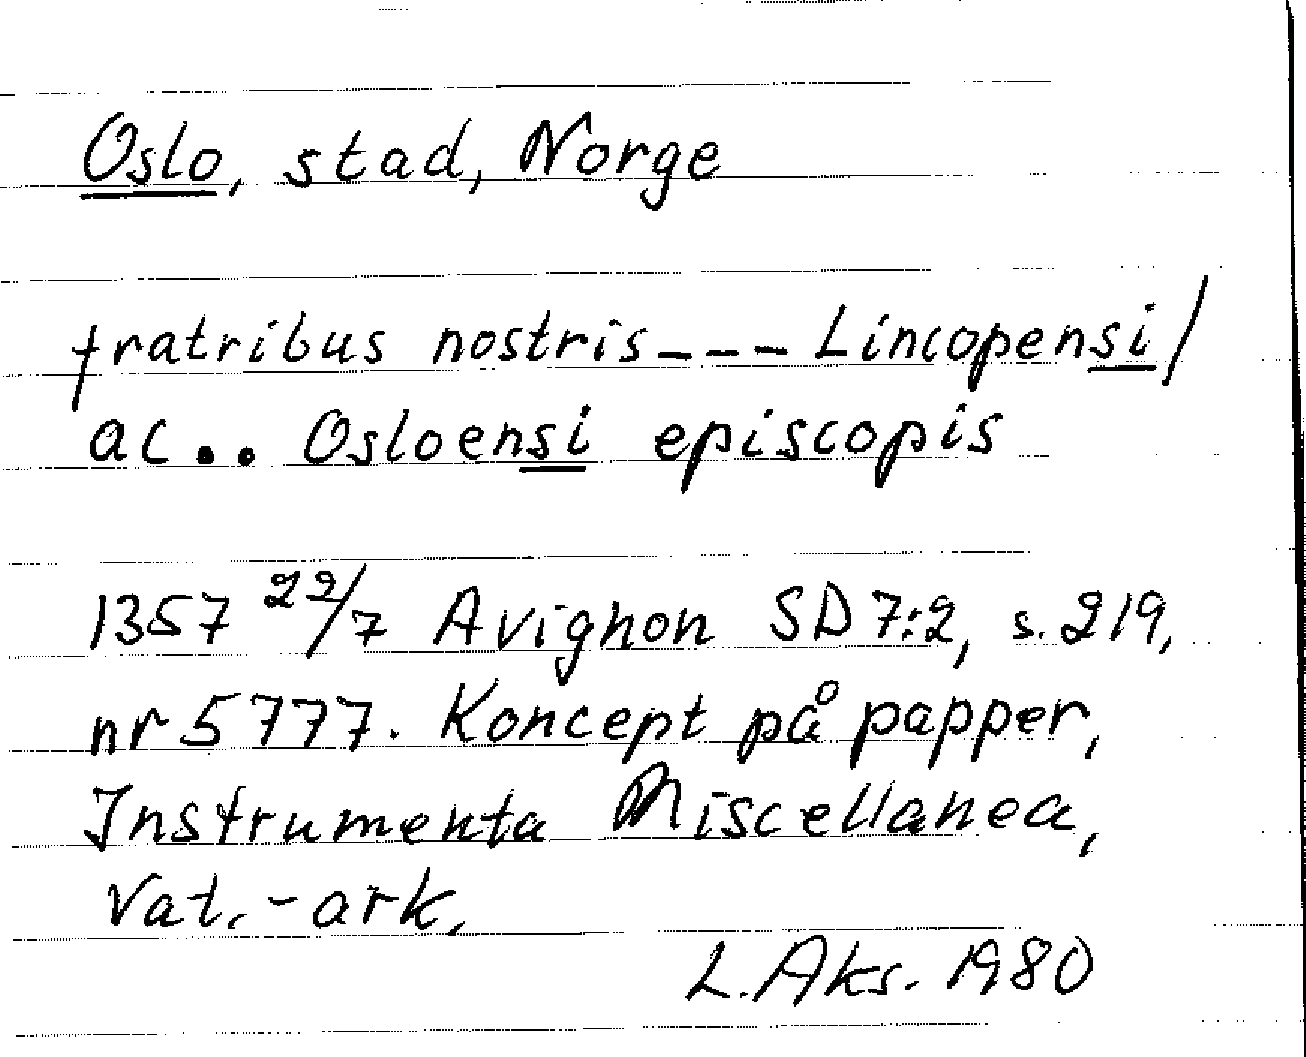 Oslo, stad, Norge
fratribus nostris--- Lincopensi/
ac.. Osloensi episcopis
1357 22/7 Avignon SD 7:2, s. 219,
nr 5777. Koncept på papper,
Instrumenta Miscellanea,
Vat.-ark.
L.Aks. 1980